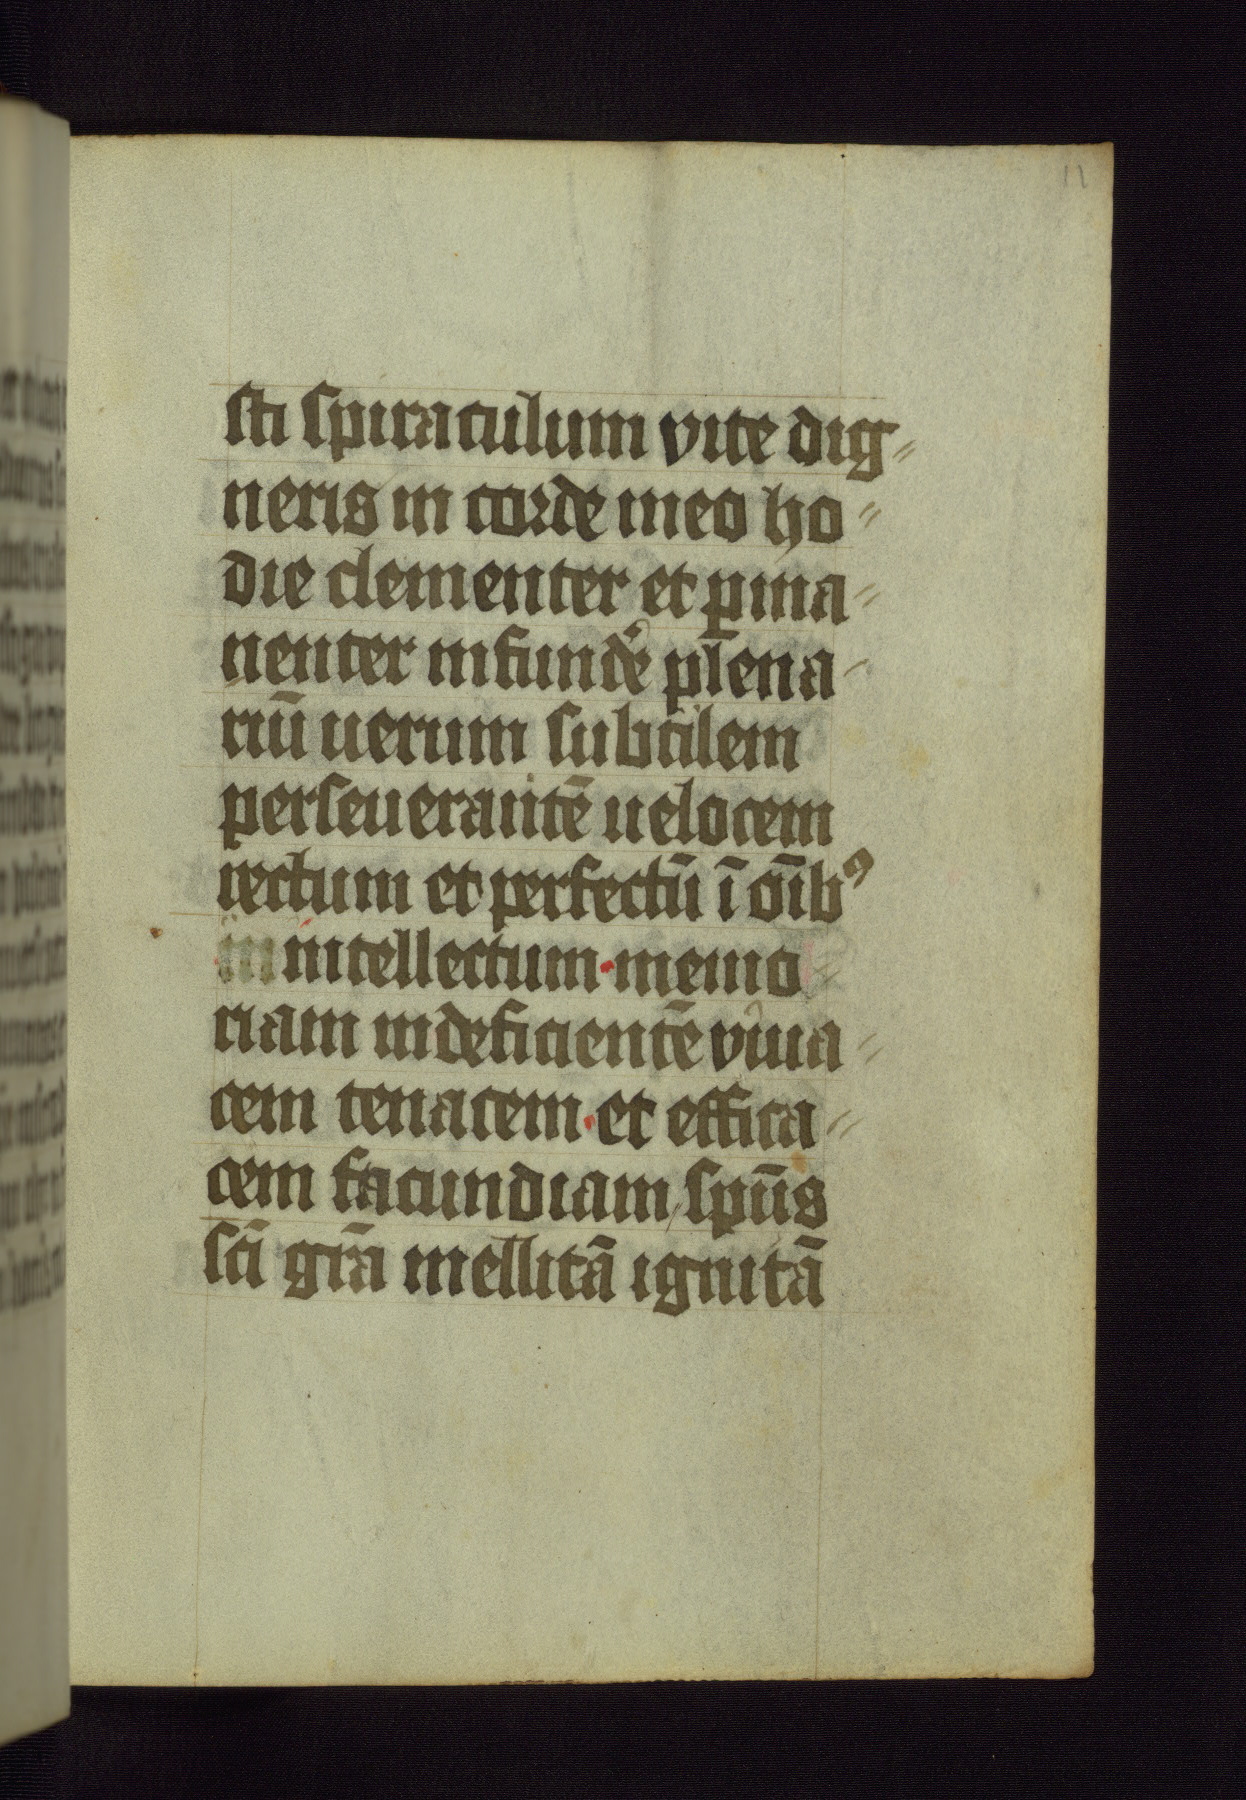 11
sti spiraculum vite dig〃
neris in corde meo ho〃
die clementer et ꝑma〃
nenter infundẽ plena〃
riū uerum subtilem
perseuerantē uelocem
rectum et perfectū ī oībꝰ
in intellectum · memo〃
riam indeficientē viua〃
cem tenacem · et effica〃
cem facundiam / spūs
scī grā mellitā ignitā